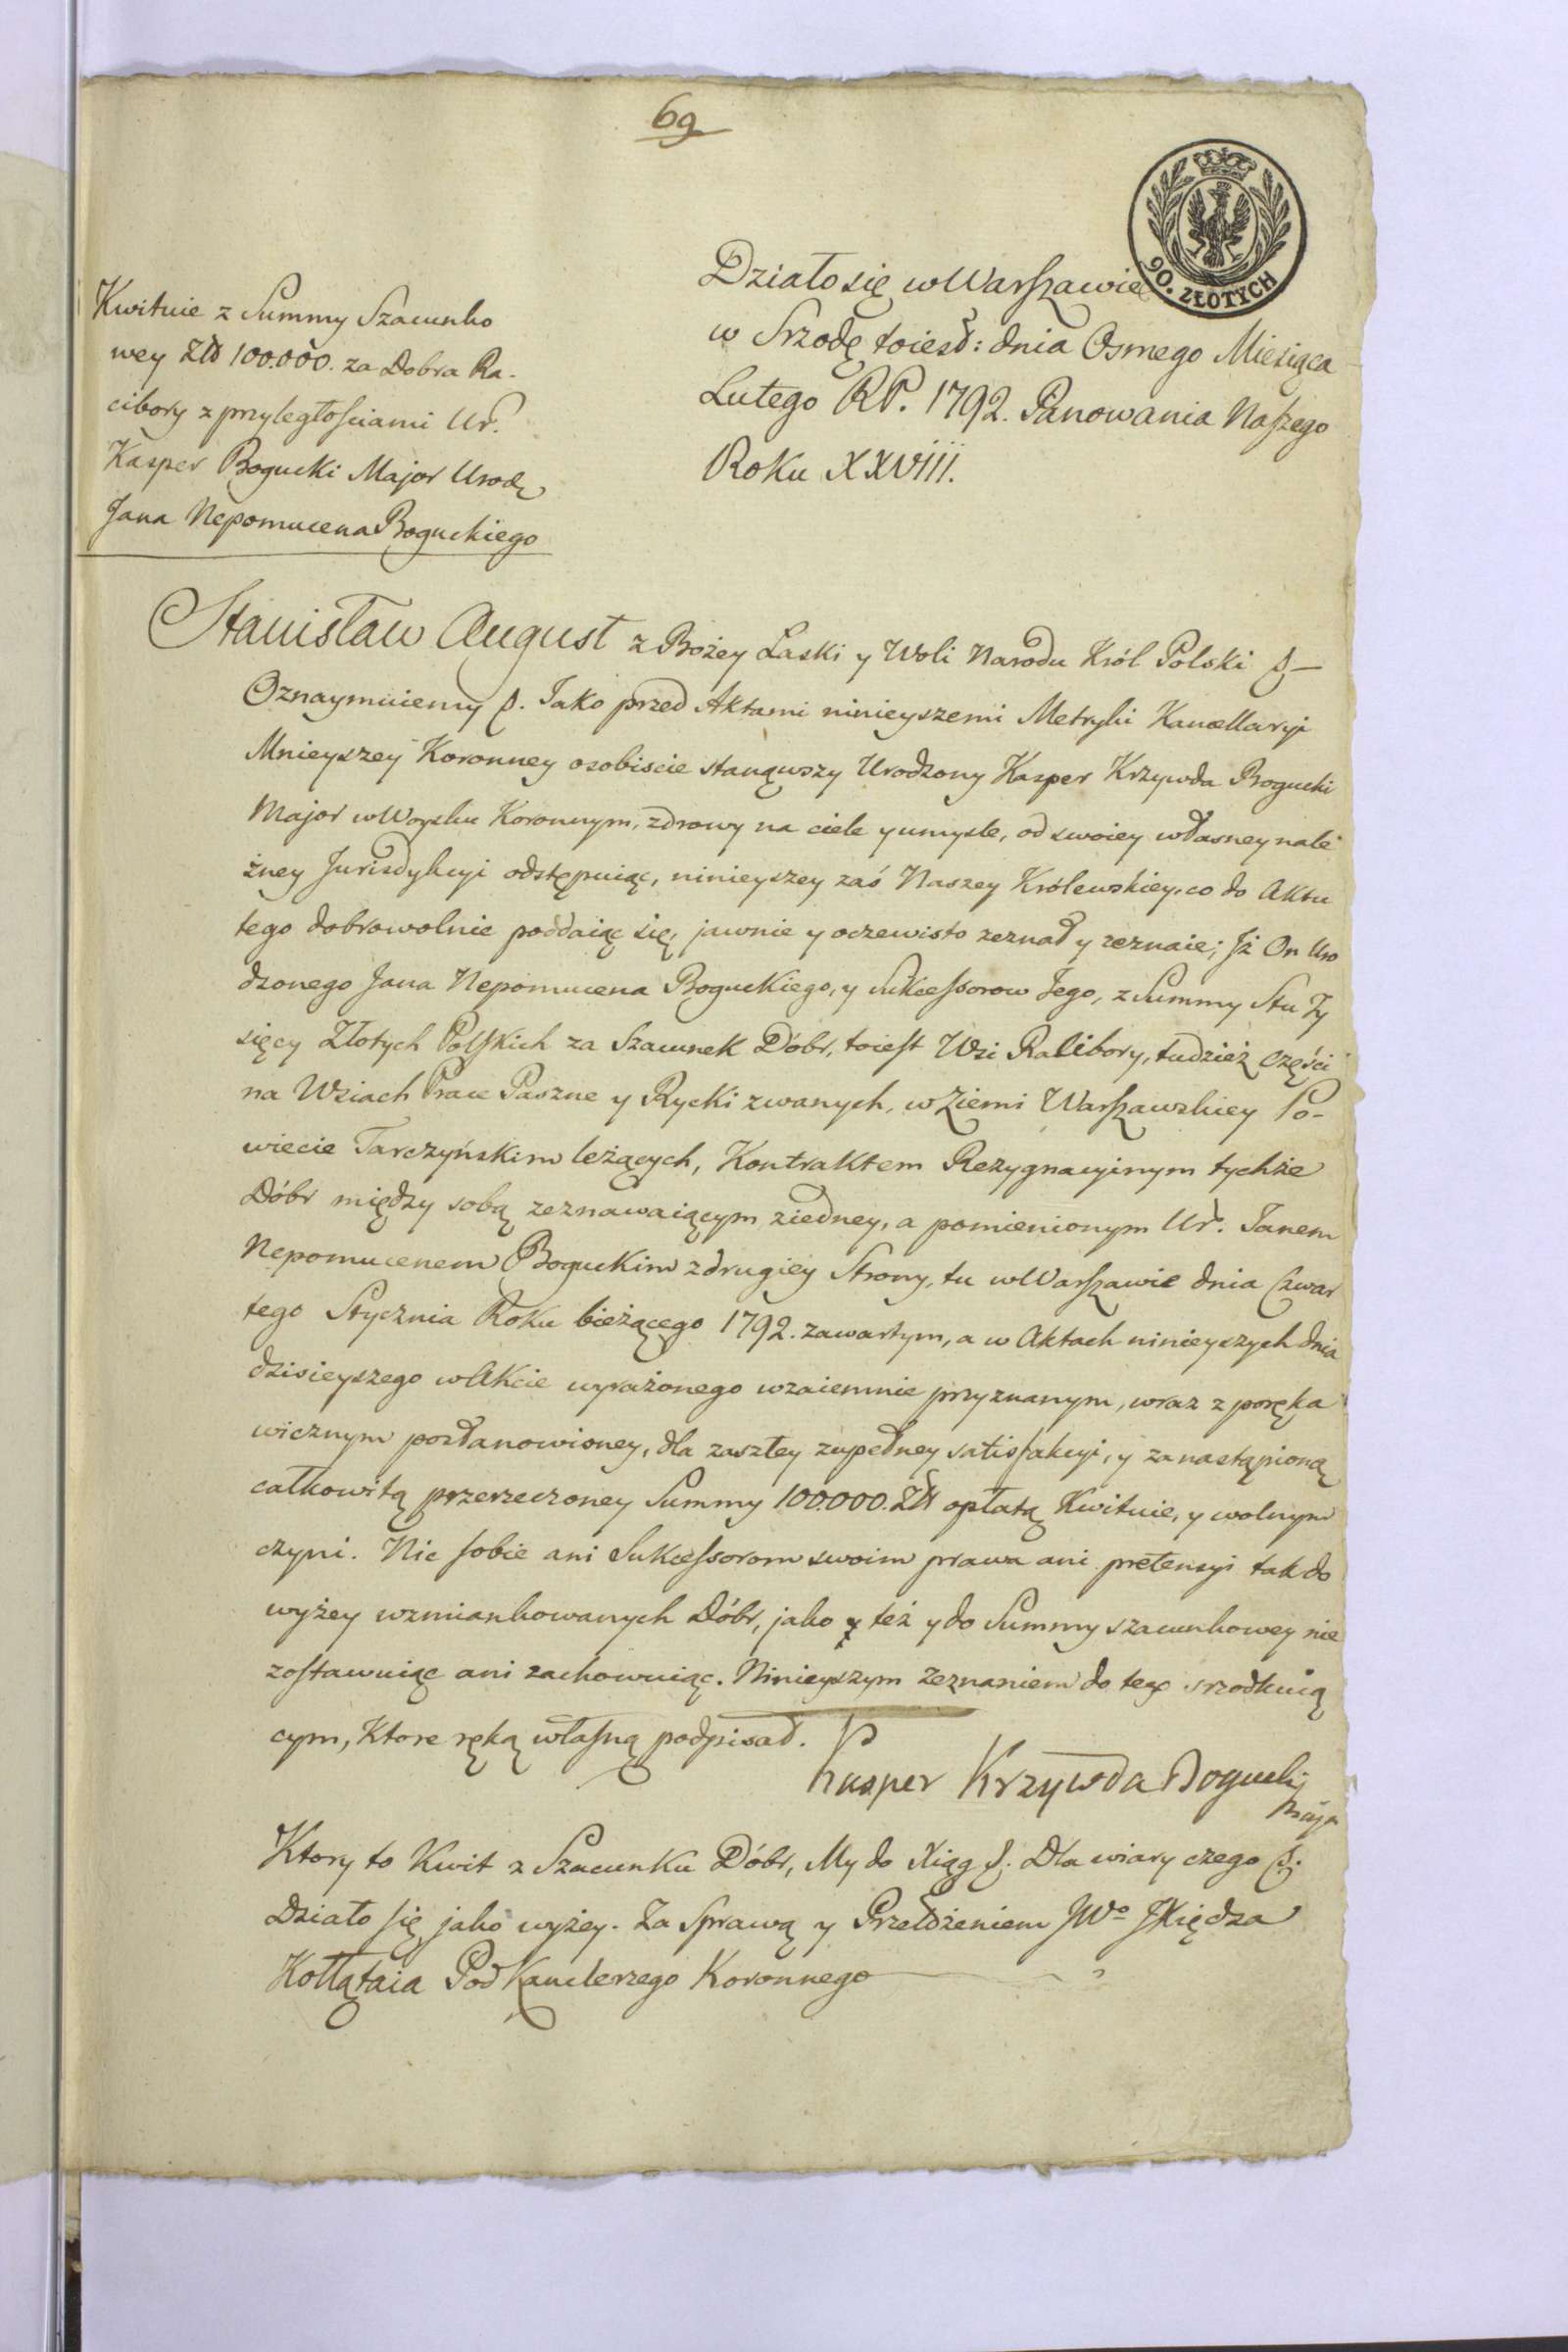 69
90. ZŁOTYCH
Działo się w Warszawie
w Srzodę toiest: dnia Osmego Miesiąca
Lutego RP. 1792. Panowania Naszego
Roku XXVIII.
Kwituie z Summy Szacunko
wey Złł 100.000. za Dobra Ra-
cibory z przyległościami Ur.
Kasper Bogucki Major Urodz
Jana Nepomucena Boguckiego
Stanisław August z Bożey Łaski y Woli Narodu Król Polski &
Oznaymuiemy &. Jako przed Aktami ninieyszemi Metryki Kancellaryi
Mnieyszey Koronney osobiscie stanąwszy Urodzony Kasper Krzywda Bogucki
Major w Woysku Koronnym, zdrowy na ciele y umysle, od swoiey własney nale
żney Jurisdykcyi odstępuiąc, ninieyszey zaś Naszey Królewskiey, co do Aktu
tego dobrowolnie poddaiąc się, jawnie y oczewisto zeznał y zeznaie; Jż On Uro
dzonego Jana Nepomucena Boguckiego, y Sukcessorow Jego, z Summy Stu Ty
sięcy Złotych Polskich za Szacunek Dóbr, toiest Wsi Racibory, tudzież części
na Wsiach Prace Paszne y Rycki zwanych, w Ziemi Warszawskiey Po-
wiecie Tarczyńskim leżących, Kontraktem Rezygnacyinym tychże
Dóbr między sobą zeznawaiącym ziedney, a pomienionym Ur. Janem
Nepomucenem Boguckim z drugiey Strony, tu w Warszawie dnia Czwar
tego Stycznia Roku bieżącego 1792. zawartym, a w Aktach ninieyszych dnia
dzisieyszego w Akcie wyrażonego wzaiemnie przyznanym, wraz z poręka
wicznym postanowioney, dla zaszłey zupełney satisfakcyi, y za nastąpioną
całkowitą przerzeczoney Summy 100.000. Złł opłatą Kwituie, y wolnym
czyni. Nic sobie ani Sukcessorom swoim prawa ani pretensyi tak do
wyżey wzmiankowanych Dóbr, jako y też y do Summy szacunkowey nie
zostawuiąc ani zachowuiąc. Ninieyszym Zeznaniem do tego srzodkuią
cym, Ktore ręką własną podpisał.
Kasper Krzywda Bogucki
Major
Ktory to Kwit z Szacunku Dóbr, My do Xiąg &. Dla wiary czego &.
Działo się jako wyżey. Za Sprawą y Przełożeniem JWo JXiędza
Kołłątaia Pod Kanclerzego Koronnego